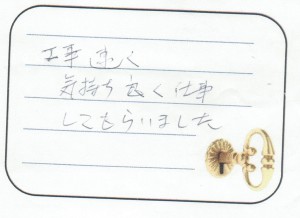 工事速く
気持ち良く仕事
してもらいました